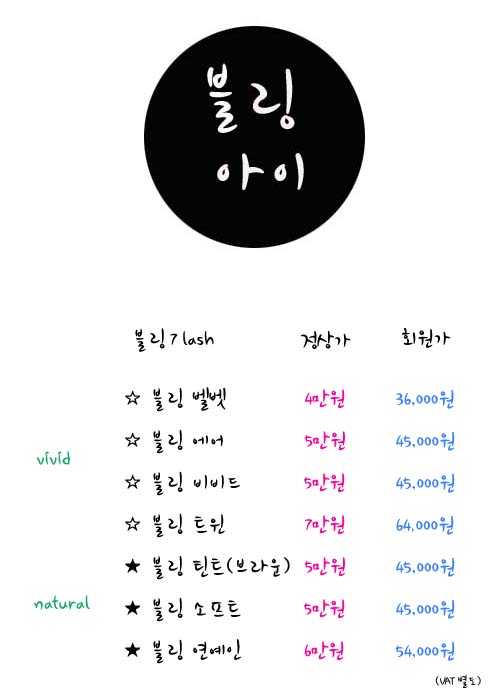 블링
아이
블링 7 lash 정상가 회원가
☆ 블링 벨벳 4만원 36,000원
☆ 블링 에어 5만원 45,000원
vivid
☆ 블링 비비드 5만원 45,000원
☆ 블링 트윈 7만원 64,000원
★ 블링 틴트(브라운) 5만원 45,000원
natural
★ 블링 소프트 5만원 45,000원
★ 블링 연예인 6만원 54,000원
(VAT 별도)